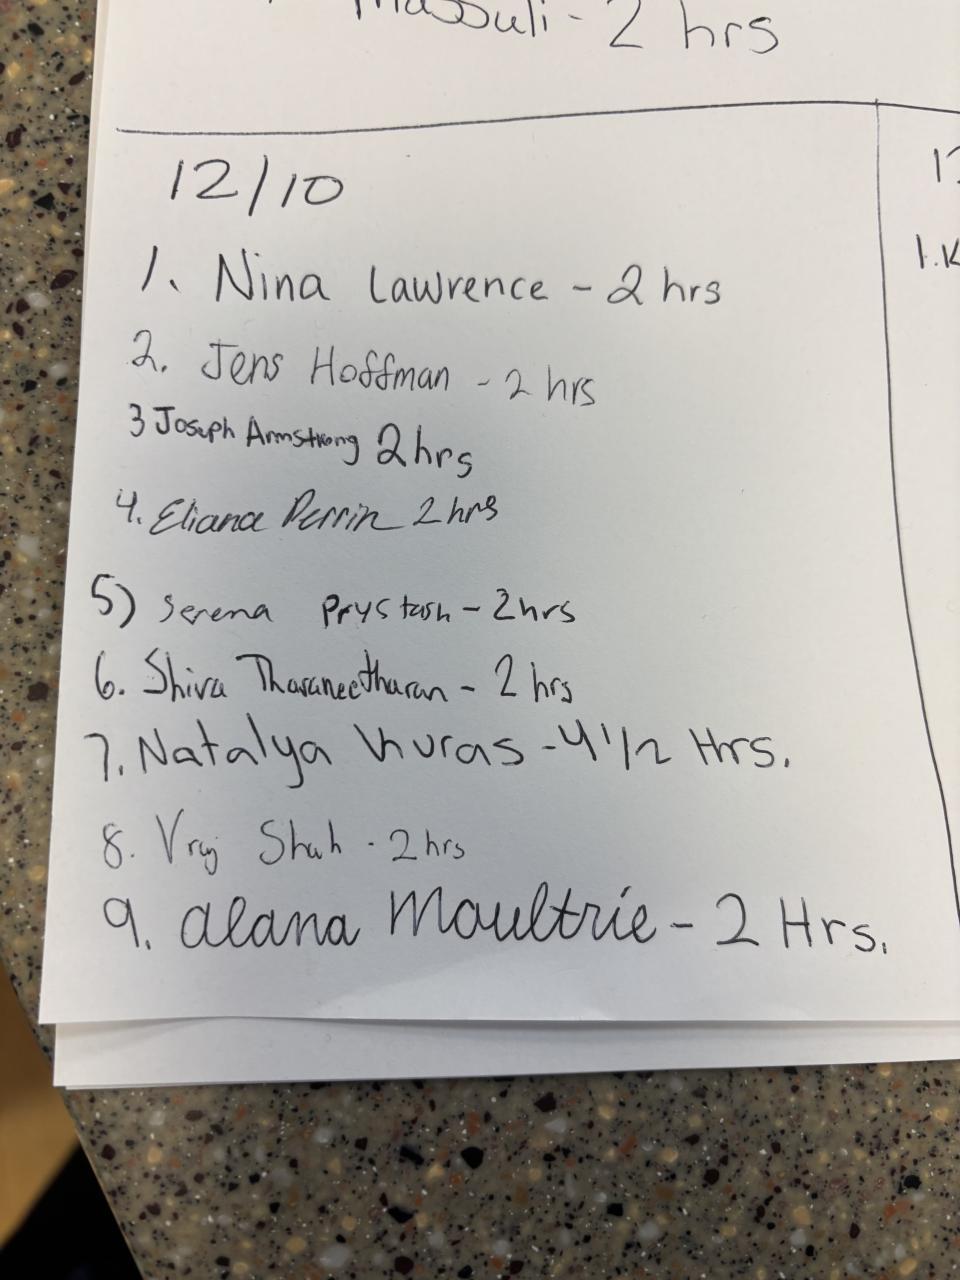 Massuli - 2 hrs
12/10
1. Nina Lawrence - 2 hrs
2. Jens Hoffman - 2 hrs
3 Joseph Armstrong 2hrs
4. Eliana Perrin 2 hrs
5) Serena Prystash - 2hrs
6. Shiva Tharaneetharan - 2 hrs
7. Natalya - 4 1/2 Hrs.
8. Vraj Shah - 2 hrs
9. Alana Moultrie - 2 Hrs.
1. K